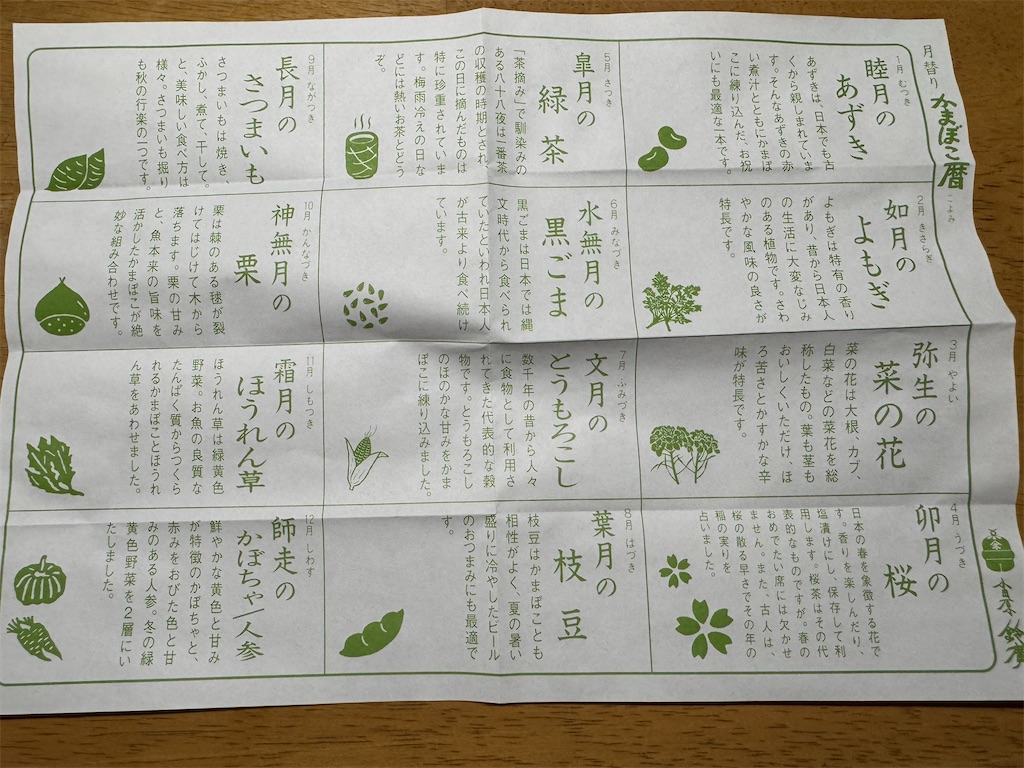 月替り
かまぼこ暦
こよみ
1月 むつき
睦月の
あずき
あずきは、日本でも古
くから親しまれていま
す。そんなあずきの赤
い煮汁とともにかまぼ
こに練り込んだ、お祝
いにも最適な一本です。
2月 きさらぎ
如月の
よもぎ
よもぎは特有の香り
があり、昔から日本人
の生活に大変なじみ
のある植物です。さわ
やかな風味の良さが
特長です。
3月 やよい
弥生の
菜の花
菜の花は大根、カブ、
白菜などの菜花を総
称したもの。葉も茎も
おいしくいただけ、ほ
ろ苦さとかすかな辛
味が特長です。
4月 うづき
卯月の
桜
日本の春を象徴する花で
す。香りを楽しんだり、
塩漬けにし、保存して利
用します。桜茶はその代
表的なものですが。春の
おめでたい席には欠かせ
ません。また、古人は、
桜の散る早さでその年の
稲の実りを
占いました。
5月 さつき
皐月の
緑茶
「茶摘み」で馴染みの
ある八十八夜は一番茶
の収穫の時期とされ、
この日に摘んだものは
特に珍重されていま
す。梅雨冷えの日な
どには熱いお茶とどう
ぞ。
6月 みなづき
水無月の
黒ごま
黒ごまは日本では縄
文時代から食べられ
ていたといわれ日本人
が古来より食べ続け
ています。
7月 ふみづき
文月の
とうもろこし
数千年の昔から人々
に食物として利用さ
れてきた代表的な穀
物です。とうもろこし
のほのかな甘みをかま
ぼこに練り込みました。
8月 はづき
葉月の
枝豆
枝豆はかまぼことも
相性がよく、夏の暑い
盛りに冷やしたビール
のおつまみにも最適で
す。
9月 ながつき
長月の
さつまいも
さつまいもは焼き、
ふかし、煮て、干して。
と、美味しい食べ方は
様々。さつまいも掘り
も秋の行楽の一つです。
10月 かんなづき
神無月の
栗
栗は棘のある毬が裂
けてはじけて木から
落ちます。栗の甘み
と、魚本来の旨味を
活かしたかまぼこが絶
妙な組み合わせです。
11月 しもつき
霜月の
ほうれん草
ほうれん草は緑黄色
野菜。お魚の良質な
たんぱく質からつくら
れるかまぼことほうれ
ん草をあわせました。
12月 しわす
師走の
かぼちゃ/人参
鮮やかな黄色と甘み
が特徴のかぼちゃと、
赤みをおびた色と甘
みのある人参。冬の緑
黄色野菜を2層にい
たしました。
鈴廣